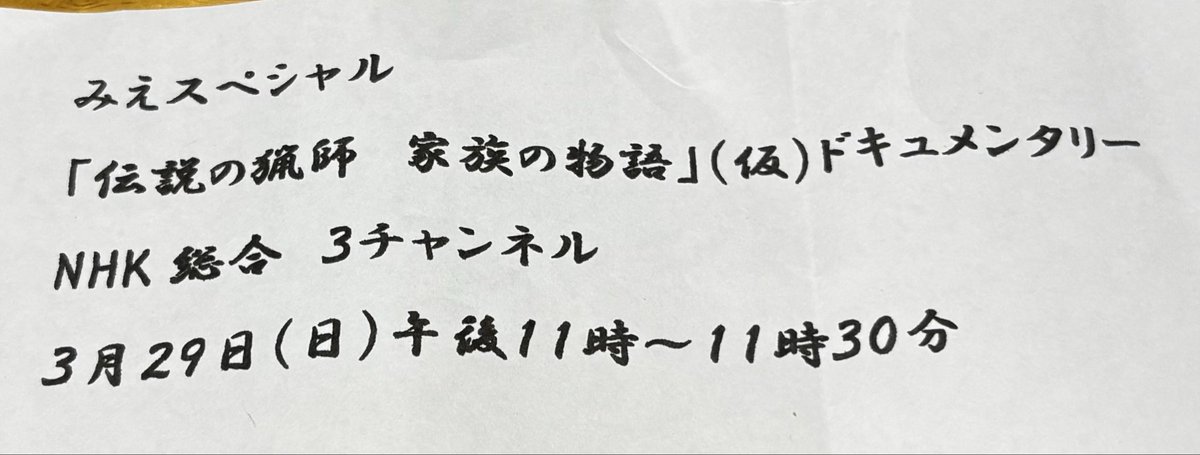 みえスペシャル
「伝説の猟師　家族の物語」(仮)ドキュメンタリー
NHK 総合　3チャンネル
3月29日(日)午後11時〜11時30分